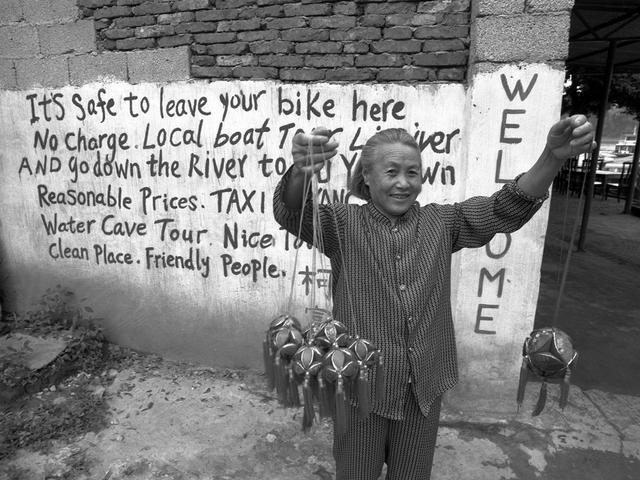 It's Safe to leave your bike here
No Charge. Local boat Tour Li River
AND go down the River to
Reasonable Prices. TAXI
Water Cave Tour. Nice
Clean Place. Friendly People.
WELCOME